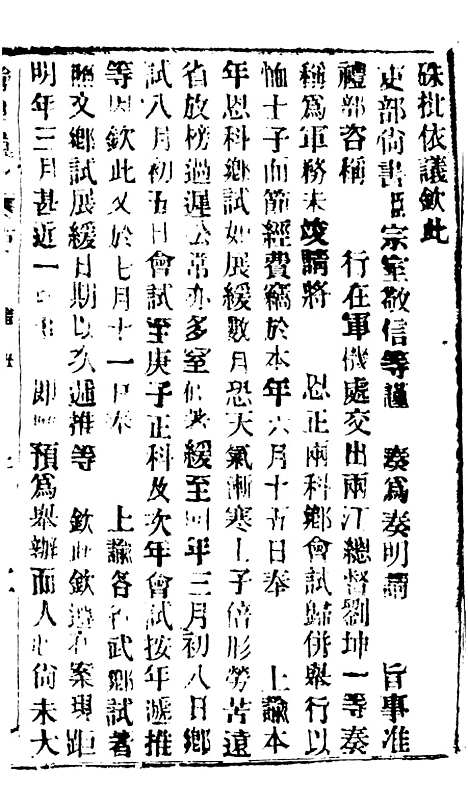 硃批依議欽此
吏部尚書臣宗室敬信等謹 奏為奏明請 旨事准
禮部咨稱 行在軍機處交出兩江總督劉坤一等奏
稱為軍務未竣請將 恩正兩科鄉會試歸併舉行以
恤士子而節經費竊於本年六月十五日奉 上諭本
年恩科鄉試如展緩數月恐天氣漸寒士子倍形勞苦遠
省放榜過遲公常亦多室 著緩至 年三月初八日鄉
試八月初五日會試至庚子正科及次年會試按年遞推
等因欽此又於七月十一日奉 上諭各省武鄉試著
照文鄉試展緩日期以次遞推等 欽此欽遵在案現距
明年三月甚近一 即 預為舉辦而人心尚未大